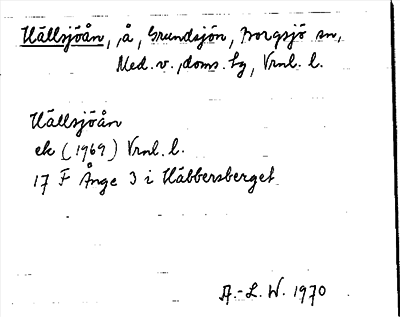 Hällsjöån, å, Grundsjön, Borgsjö sn,
Med. v. doms. hg, Vrnl. l.
Hällsjöån
ek (1969) Vrnl. l.
17 F Ånge 3 i Häbbersberget
A.-L. W. 1970